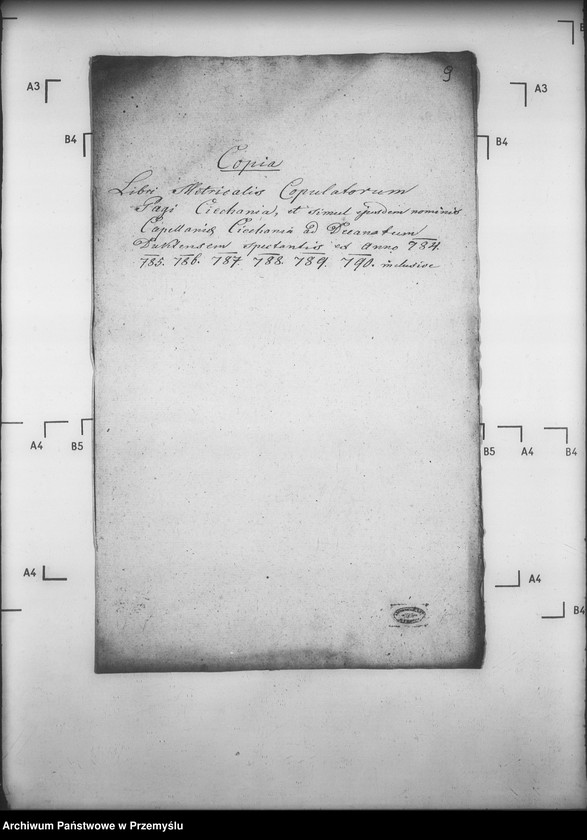 9
Copia
Libri Metricalis Copulatorum
Pagi Ciechania, et simul ejusdem nominis
Capellaniæ Ciechania ad Decanatum
Duklensem spectantis ex Anno 784.
785. 786. 787. 788. 789. 790. inclusive
A3
A3
B4
B4
A4
B5
B5
A4
B4
A4
A4
B4
Archiwum Państwowe w Przemyślu